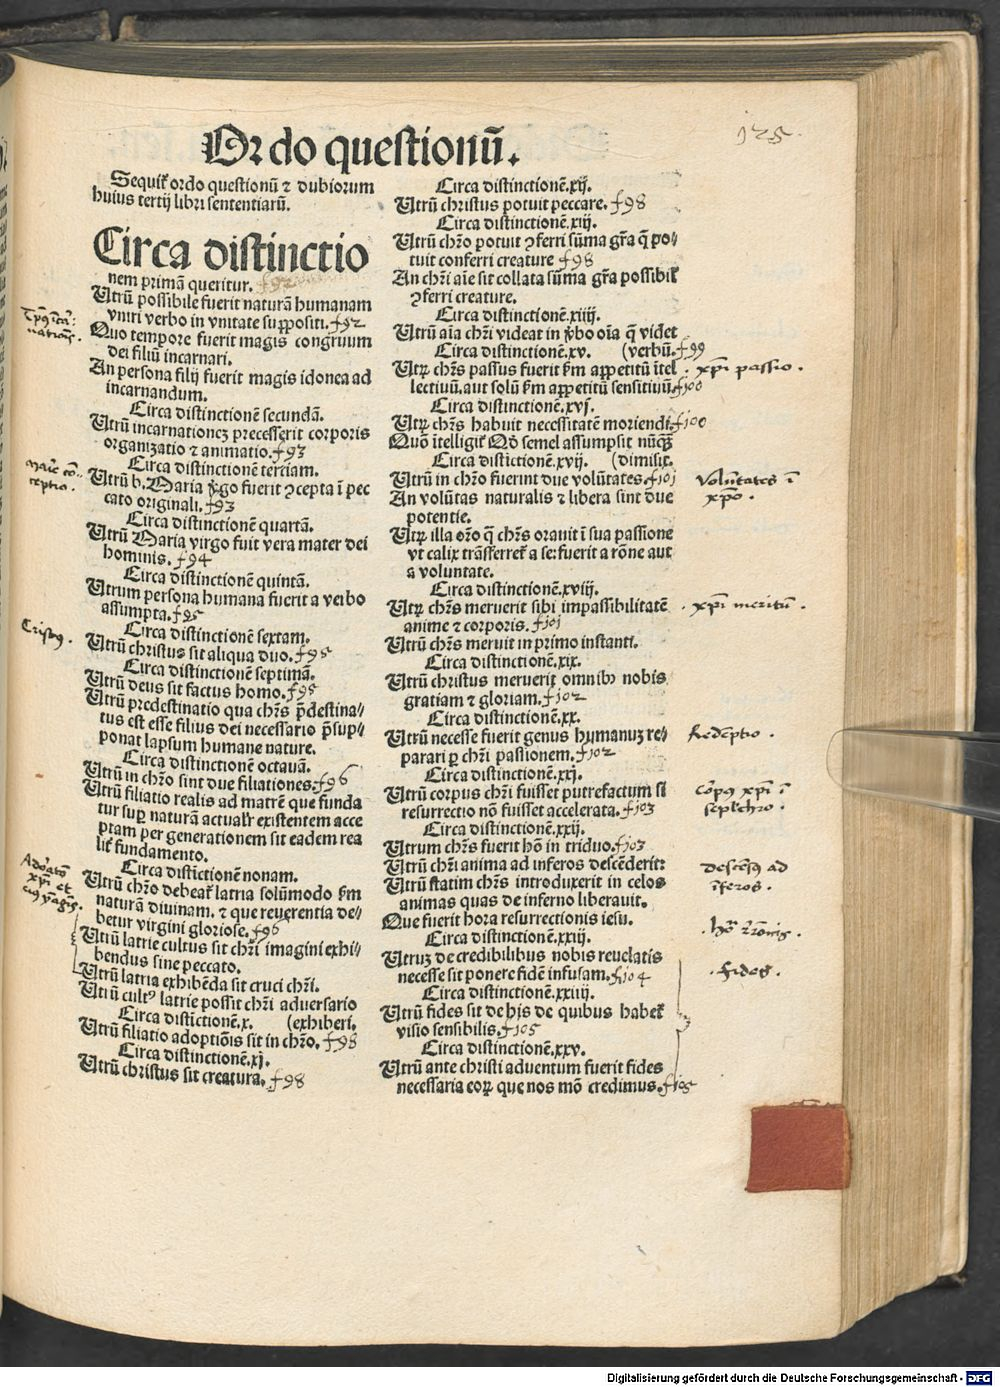 125.
Ordo questionū.
Sequit̃ ordo questionū ⁊ dubiorum
huius tertij libri sententiarū.
Circa distinctio
nem primā queritur. f92
Utrū possibile fuerit naturā humanam
vniri verbo in vnitate suppositi. f92
Quo tempore fuerit magis congruum
dei filiū incarnari.
An persona filij fuerit magis idonea ad
incarnandum.
Circa distinctionē secundā.
Utrū incarnationcz precesserit corporis
organizatio ⁊ animatio. f93
Circa distinctionē terciam.
Utrū b. Maria v̕go fuerit ↄcepta ī pec
cato originali. f93
Circa distinctionē quartā.
Utrū Maria virgo fuit vera mater dei
hominis. f94
Circa distinctionē quintā.
Utrum persona humana fuerit a verbo
assumpta. f95
Cristus.
Circa distinctionē sextam.
Utrū christus sit aliqua duo. f95
Circa distinctionē septimā.
Utrū deus sit factus homo. f95
Utrū predestinatio qua chr̄s p̄destina//
tus est esse filius dei necessario p̄sup//
ponat lapsum humane nature.
Circa distinctionē octauā.
Utrū in chr̄o sint due filiationes. f96
Utrū filiatio realis ad matrē que funda
tur sup̱ naturā actualr̄ existentem acce
ptam per generationem sit eadem rea
lit̃ fundamento.
Circa distictionē nonam.
Utrū chr̄o debeat̃ latria solūmodo ẜm
naturā diuinam. ⁊ que reuerentia de//
betur virgini gloriose. f96
Utrū latrie cultus sit chr̄i imagini exhi//
bendus sine peccato.
Utrū latria exhibēda sit cruci chr̄i.
Utrū cultꝰ latrie possit chr̄i aduersario
Circa distictionē.x. (exhiberi.
Utrū filiatio adoptiōis sit in chr̄o. f98
Circa distinctionē.xj.
Utrū christus sit creatura. f98
Circa distinctionē.xij.
Utrū christus potuit peccare. f98
Circa distinctionē.xiij.
Utrū chr̄o potuit ↄferri sūma gr̄a q̄ po//
tuit conferri creature f98
An chr̄i aīe sit collata sūma gr̄a possibil̃
ↄferri creature.
Circa distinctionē.xiiij.
Utrū aīa chr̄i videat in v̕bo oīa q̄ videt
Circa distinctionē.xv. (verbū. f99
Utꝝ chr̄s passus fuerit ẜm appetitū ītel
lectiuū. aut solū ẜm appetitū sensitiuū f100
xp̄i passio.
Circa distinctionē.xvj.
Utꝝ chr̄s habuit necessitatē moriendi. f100
Quō ītelligit̃ Qď semel assumpsit nūq̄ꝫ
Circa distictionē.xvij. (dimilit.
Utrū in chr̄o fuerint due volūtates f101
An volūtas naturalis ⁊ libera sint due
potentie.
Utꝝ illa or̄o q̄ chr̄s orauit ī sua passione
vt calix trāsferret̃ a se: fuerit a rōne aut
a voluntate.
Circa distinctionē.xviij.
Utꝝ chr̄s meruerit sibi impassibilitatē
anime ⁊ corporis. f101
xp̄i meritū.
Utrū chr̄s meruit in primo instanti.
Circa distinctionē.xix.
Utrū christus meruerit omnibꝰ nobis
gratiam ⁊ gloriam. f102
Circa distinctionē.xx.
Utrū necesse fuerit genus humanuꝫ re//
parari p̱ chr̄i passionem. f102
Redēptio.
Circa distinctionē.xxj.
Utrū corpus chr̄i fuisset putrefactum si
resurrectio nō fuisset accelerata. f103
Circa distinctionē.xxij.
Utrum chr̄s fuerit hō in triduo. f103
Utrū chr̄i anima ad inferos descēderit:
Utrū statim chr̄s introduxerit in celos
animas quas de inferno liberauit.
descēsꝰ ad
īferos.
Que fuerit hora resurrectionis iesu.
Circa distinctionē.xxiij.
Utruꝫ de credibilibus nobis reuelatis
necesse sit ponere fidē infusam. f104
fides.
Circa distinctionē.xxiiij.
Utrū fides sit de hjs de quibus habet̃
visio sensibilis. f105
Circa distinctionē.xxv.
Utrū ante christi aduentum fuerit fides
necessaria eoꝝ que nos mō credimus. f105
Digitalisierung gefördert durch die Deutsche Forschungsgemeinschaft - DFG